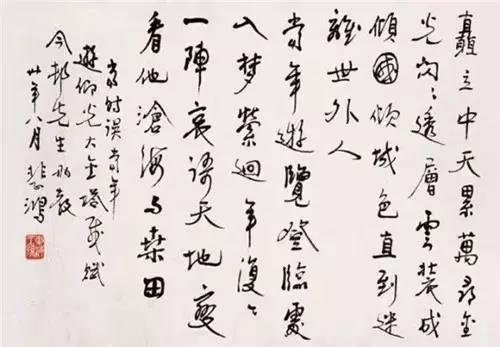 矗立中天累萬尋金
光閃々透層雲裝成
傾國傾城色直到迷
離世外人
當年遊覽登臨處
入夢縈迴年復々
一陣哀謌天地變
看他滄海与桒田
當時誤當年
遊仰光大金塔感賦
先生教
卅年八月 悲鴻